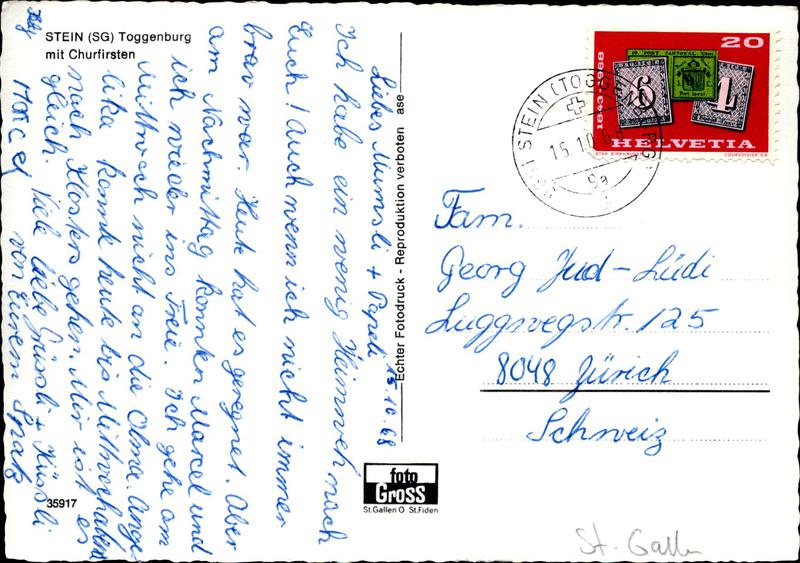 STEIN (SG) Toggenburg
mit Churfirsten
15.10.68
Liebes Mumsli + Papeli
Ich habe ein wenig Heimweh nach
Euch! Auch wenn ich nicht immer
brav war. Heute hat es geregnet. Aber
am Nachmittag konnten Marcel und
ich wieder ins Freie. Ich gehe am
Mittwoch nicht an die Olma. Ange-
lika konnte heute bis Mittwochabend
nach Klosters gehen. Mir ist es
gleich. Viele liebe Grüssli + Küssli
von Eurem Spatz
Marcel
35917
Echter Fotodruck - Reproduktion verboten ase
foto
GROSS
St.Gallen O St.Fiden
20
1843-1968
10. PORT CANTONAL. Cent.
6
4
HELVETIA
COURVOISIER S.A.
STEIN (TOGG
15.10.68
9a
Fam.
Georg Jud-Lüdi
Luggwegstr. 125
8048 Zürich
Schweiz
St. Gallen